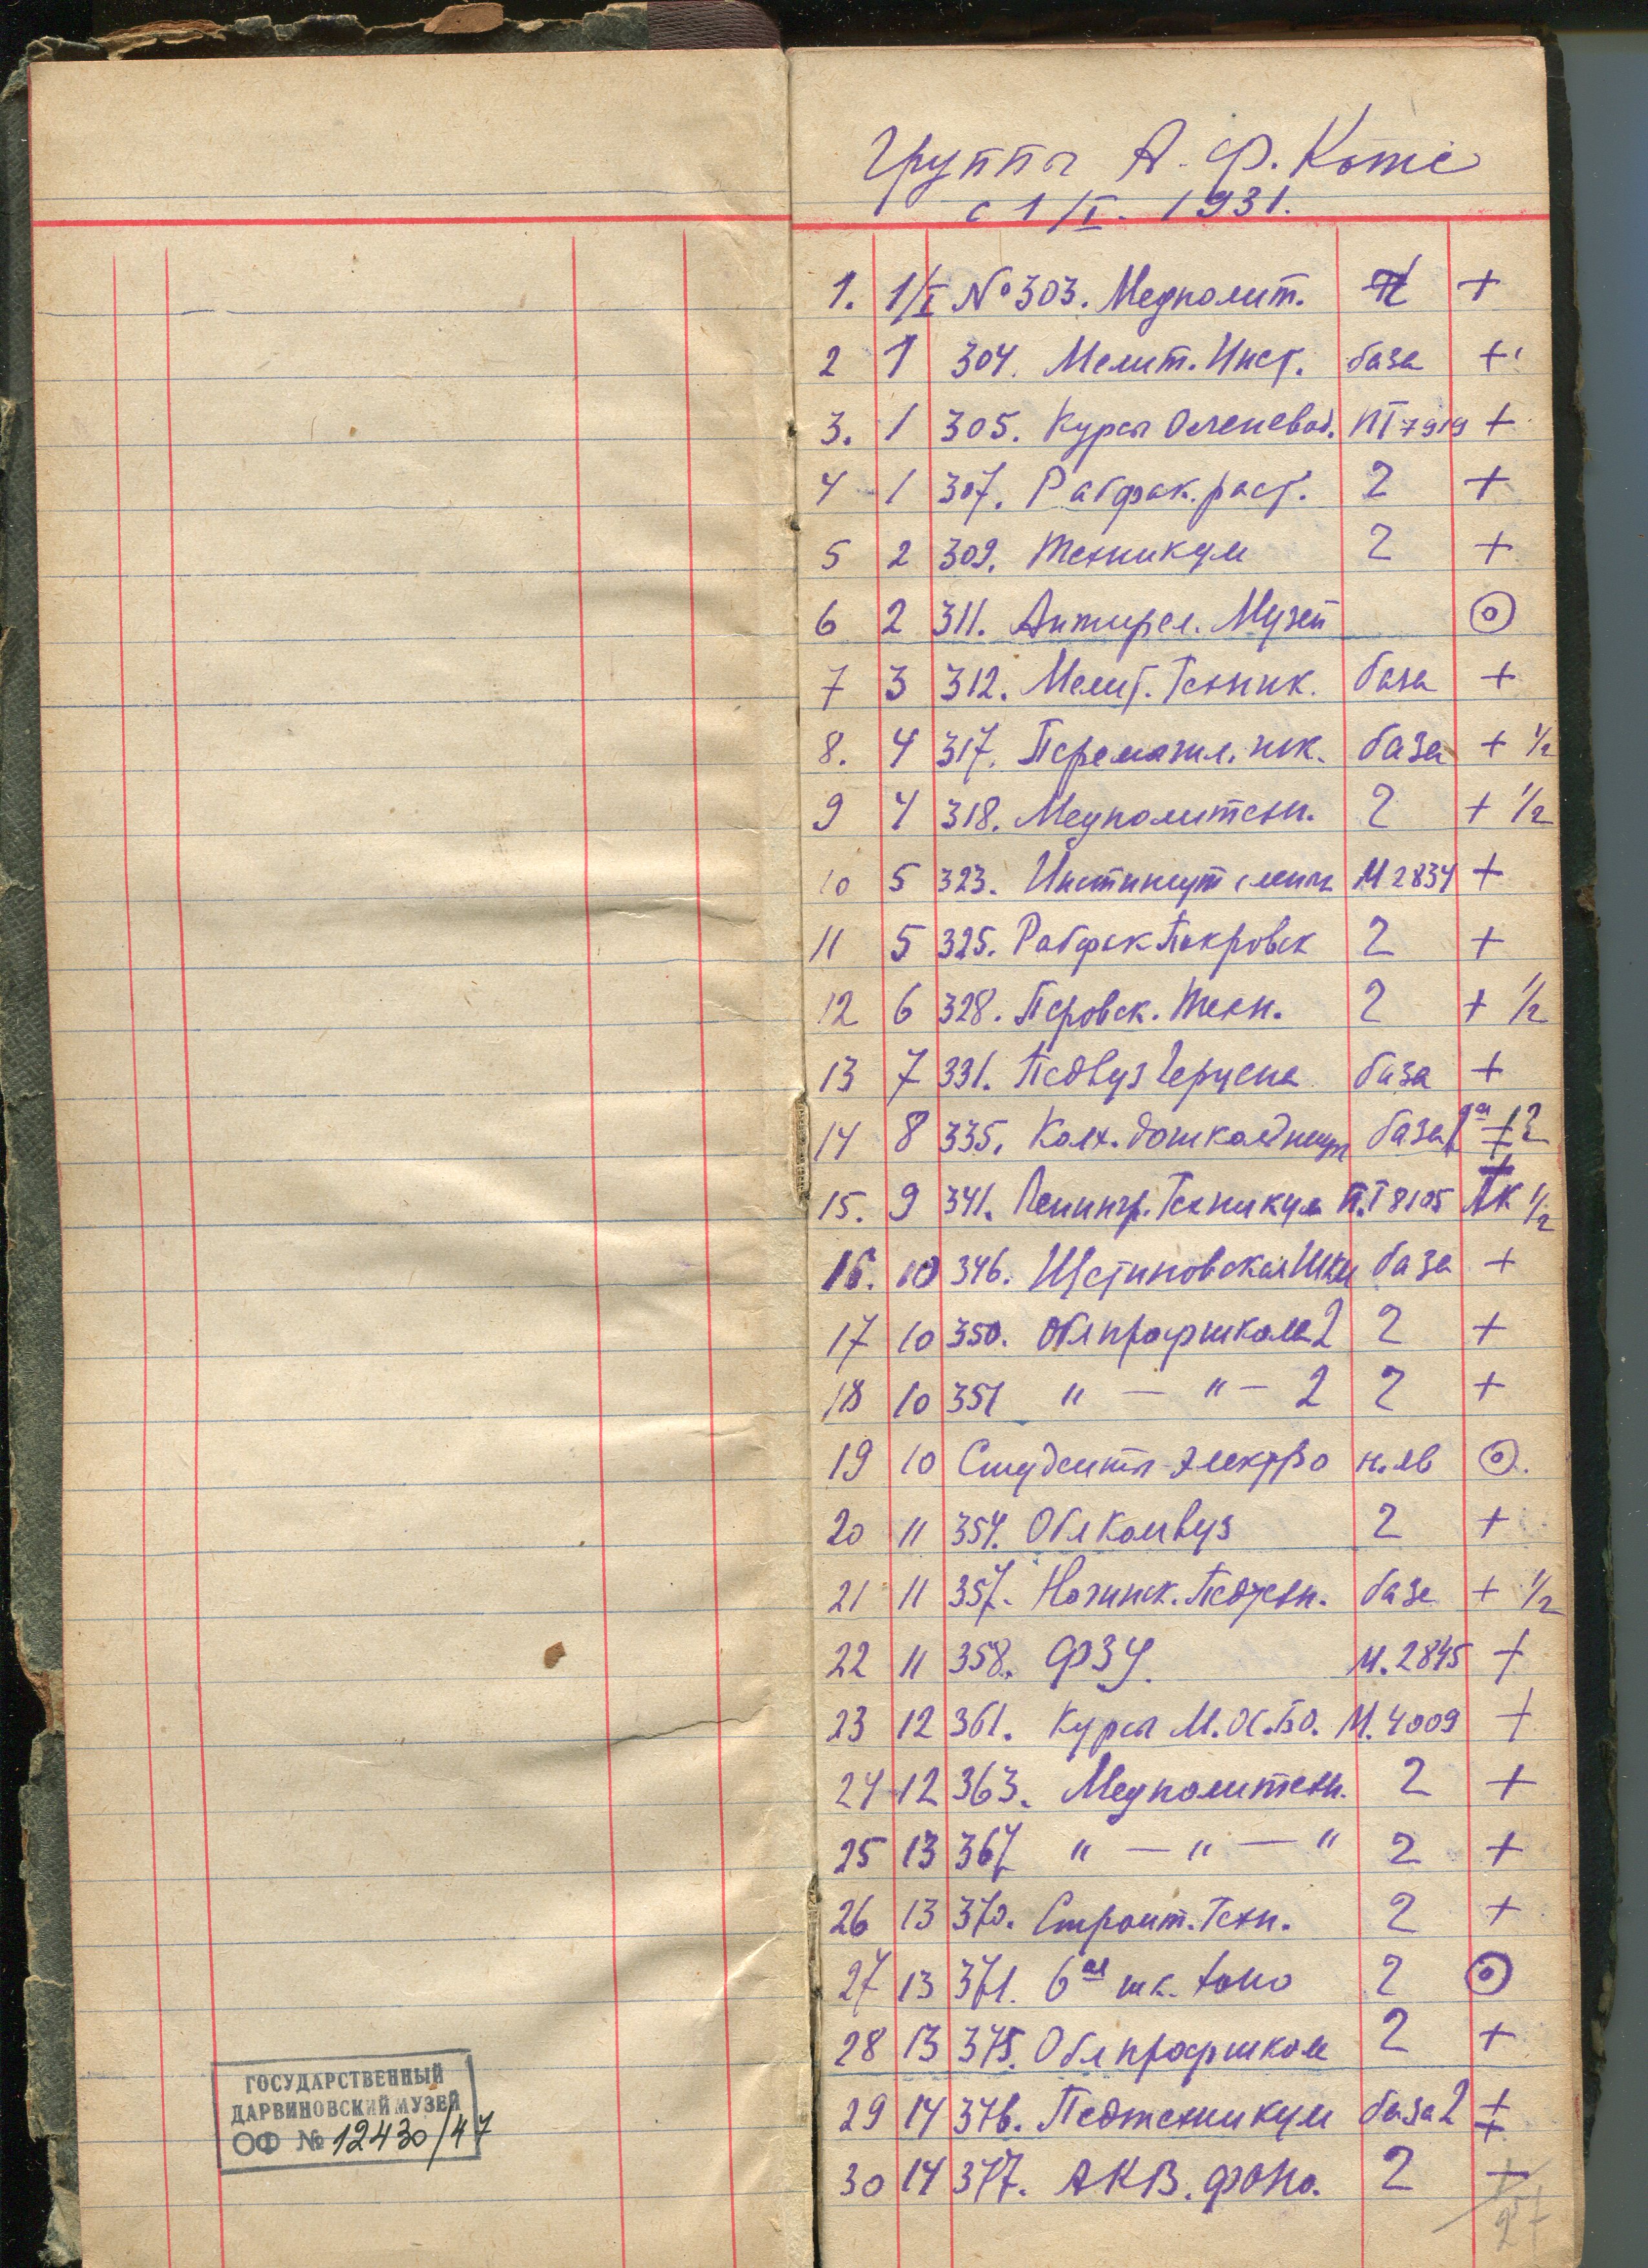 ГОСУДАРСТВЕННЫЙ
ДАРВИНОВСКИЙ МУЗЕЙ
ОФ № 12430/47
Группы А. Ф. Котс
с 1/I. 1931.
1. 1/I № 303. Медполит. +
2 1 304. Мелит. Инст. база +
3. 1 305. Курсы Оленевод. ПТ 7919 +
4 1 307. Рабфак. раст. 2 +
5 2 309. Техникум 2 +
6 2 311. Антирел. Музей ⊙
7 3 312. Мелит. Техник. база +
8. 4 317. шк. база + 1/2
9 4 318. Медполитехн. 2 + 1/2
10 5 323. Институт М 2834 +
11 5 325. Рабфак Покровск 2 +
12 6 328. Перовск. Техн. 2 + 1/2
13 7 331. Педвуз Герцена база +
14 8 335. Колх. база
15. 9 341. Ленингр. Техникум П.Т 8105 1/2
16. 10 346. Щетиновская база +
17 10 350. Облпрофшкола 2 2 +
18 10 351 " — " — 2 2 +
19 10 Студенты электро н.яв ⊙.
20 11 354. Облкомвуз 2 +
21 11 357. Ногинск. Педтехн. база + 1/2
22 11 358. ФЗУ. М. 2845 +
23 12 361. Курсы М. 4009 +
24 12 363. Медполитехн. 2 +
25 13 367 " — " — " 2 +
26 13 370. Строит. Техн. 2 +
27 13 371. 6ая шк. 2 ⊙
28 13 375. Облпрофшкол 2 +
29 14 376. Педтехникум база 2 +
30 14 377. АКВ. 2